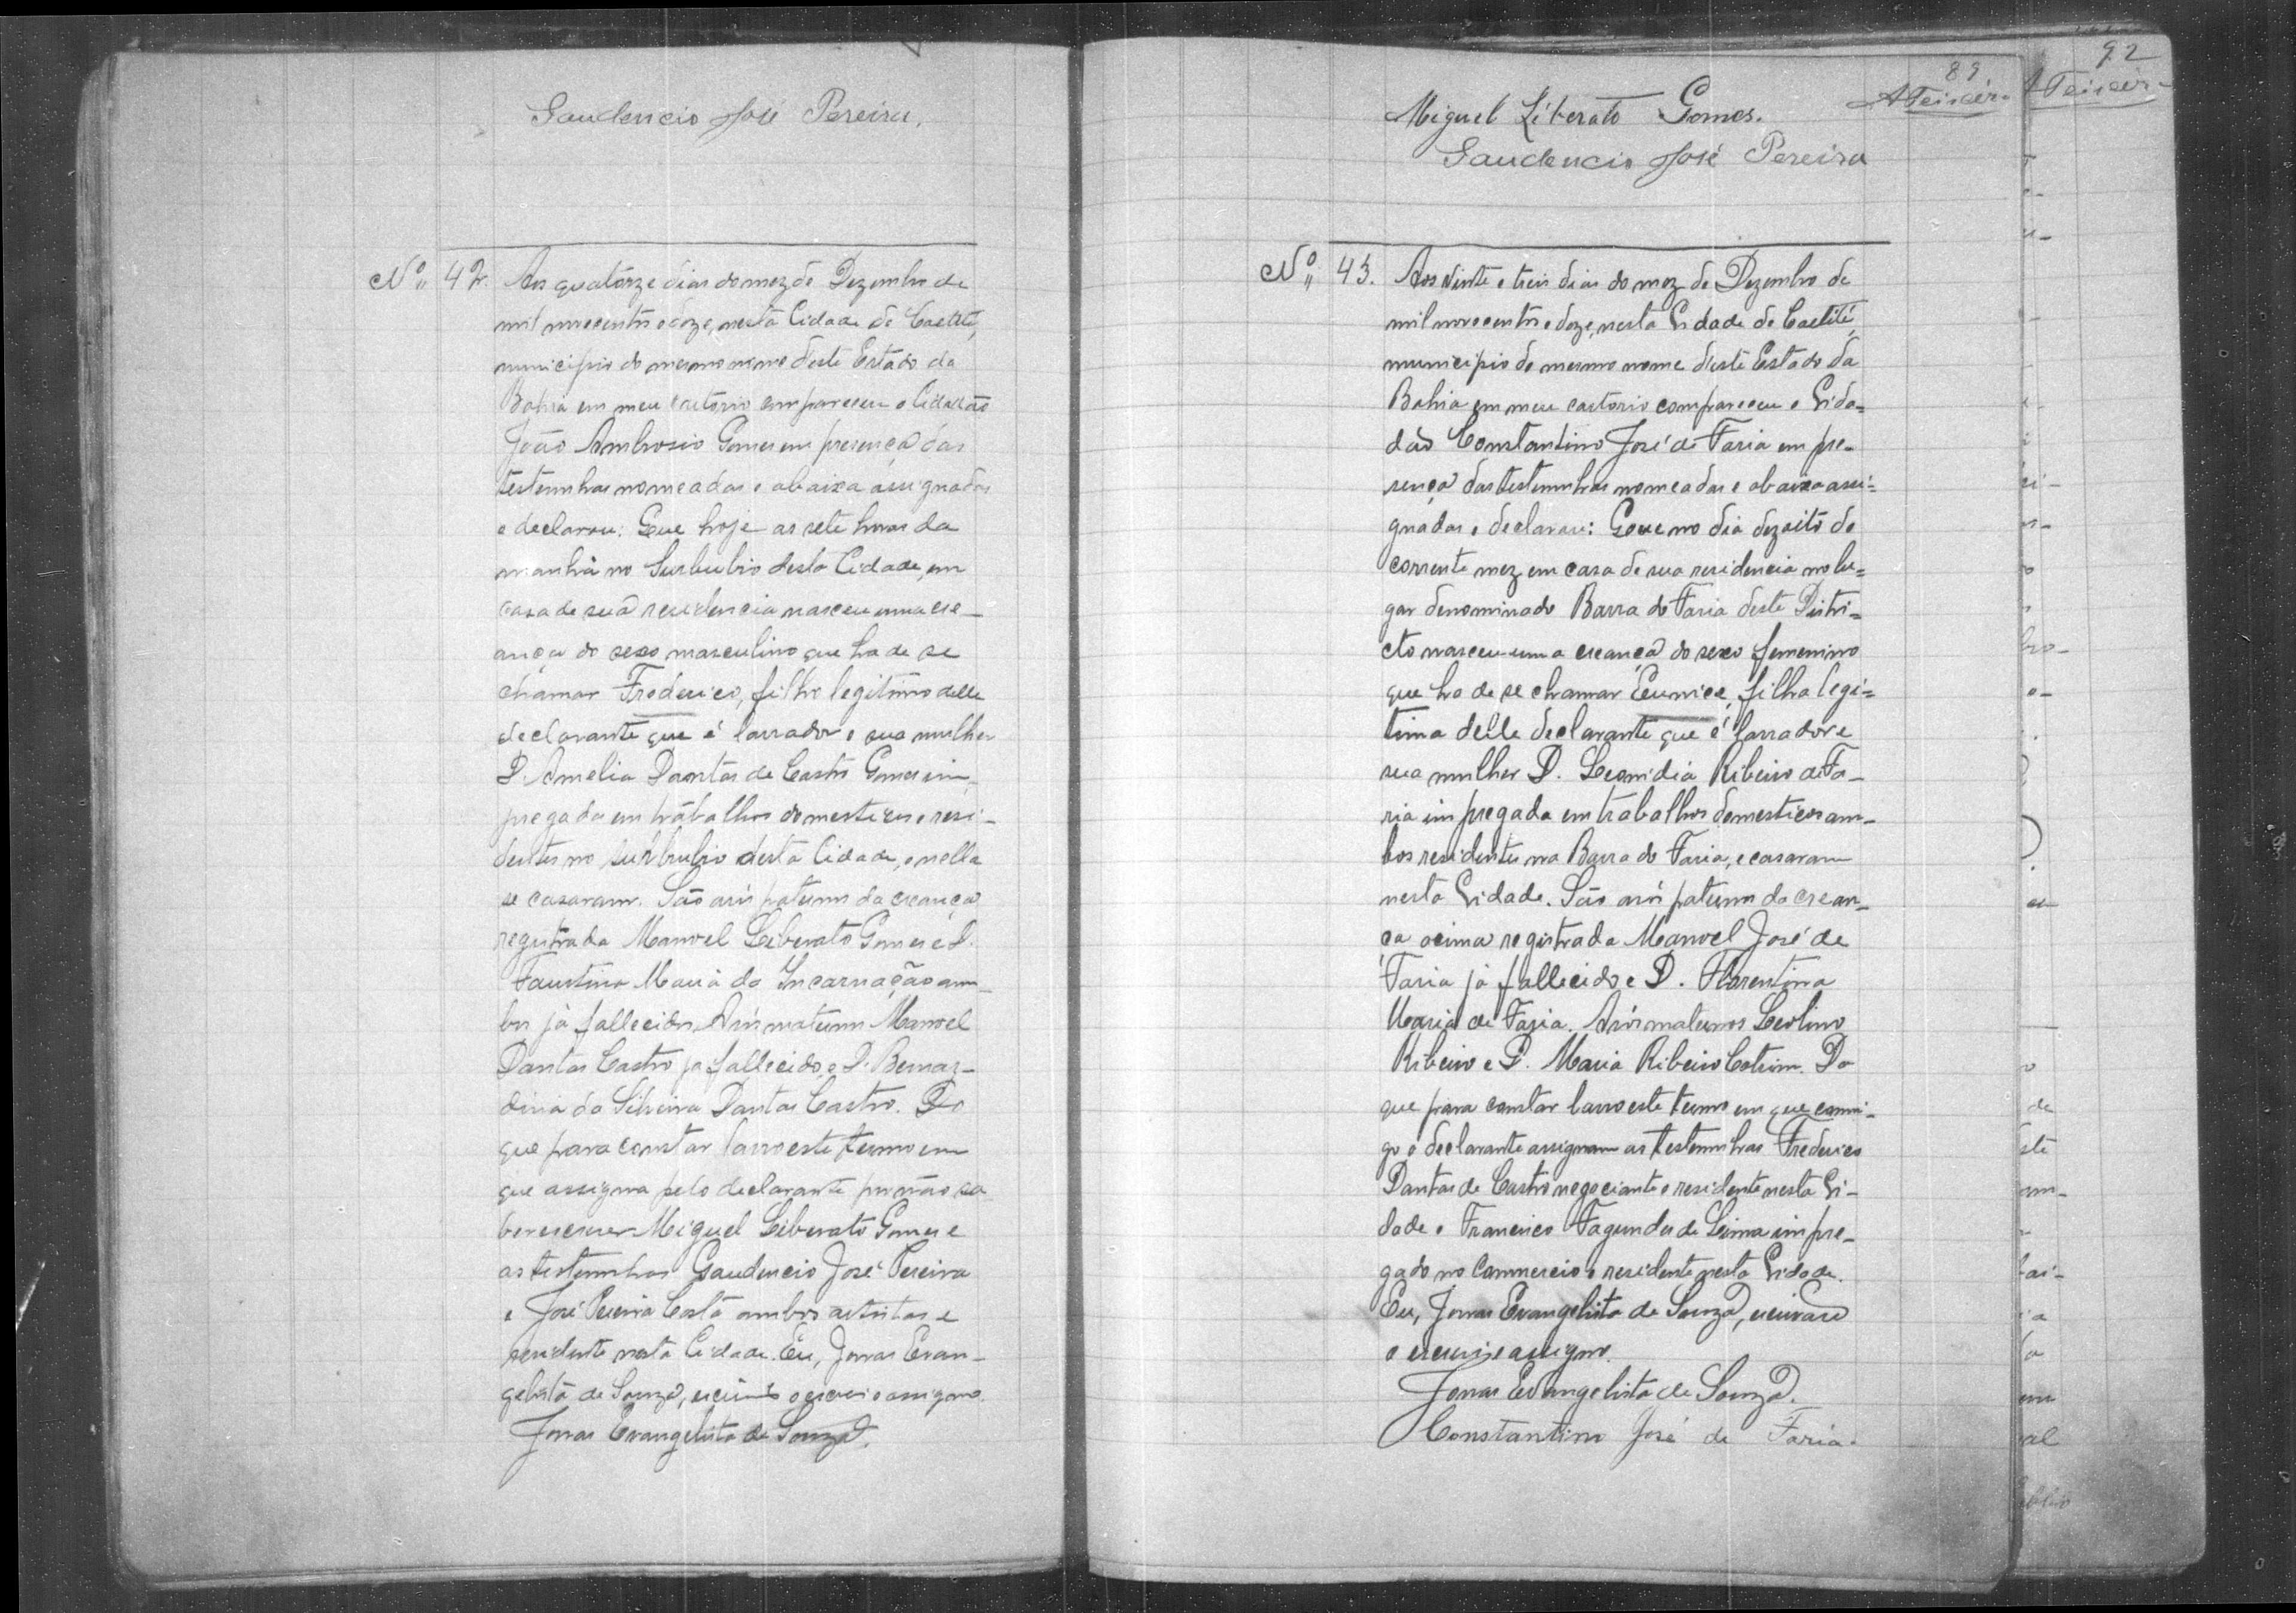 Gaudencio José Pereira.
Nº 42. Aos quatorze dias do mez de Dezembro de
mil novecentos e doze, nesta Cidade de Caetité,
municipio do mesmo nome deste Estado da
Bahia em meu cartorio compareceu o Cidadão
João Ambrosio Gomes em presença das
testemunhas nomeadas e abaixo assignadas
e declarou: Que hoje as sete horas da
manhã no Surbubio desta Cidade, em
casa de sua residencia nasceu uma cre-
ança do sexo masculino que ha de se
chamar Frederico, filho legitimo delle
declarante que é lavrador e sua mulher
D. Amelia Dantas de Castro Gomes im-
pregada em trabalhos domesticos e resi-
dentes no surbubio desta Cidade, e nella
se casaram. São avós paternos da creança
registrada Manoel Liberato Gomes e D.
Faustina Maria da Incarnação am-
bos já fallecidos. Avós maternos Manoel
Dantas Castro já fallecido, e D. Bernar-
dina da Silveira Dantas Castro. Do
que para constar lavro este termo em
que assigna pelo declarante por não sa-
ber escrever Miguel Liberato Gomes e
as testemunhas Gaudencio José Pereira
e José Pereira Costa ambos artistas e
residente nesta Cidade. Eu, Jonas Evan-
gelista de Souza, escrivão o escrevi e assigno.
Jonas Evangelista de Souza.
89
ATeixeir-
Miguel Liberato Gomes.
Gaudencio José Pereira
Nº 43. Aos vinte e treis dias do mez de Dezembro de
mil novecentos e doze, nesta Cidade de Caetité,
municipio do mesmo nome d'este Estado da
Bahia em meu cartorio compareceu o Cida=
dão Constantino José de Faria em pre-
sença das testemunhas nomeadas e abaixo assi=
gnadas e declarou: Que no dia dezoito do
corrente mez em casa de sua residencia no lu=
gar denominado Barra do Faria deste Distri=
cto nasceu uma creança do sexo femenino
que ha de se chamar Eunice, filha legi=
tima delle declarante que é lavrador e
sua mulher D. Leonidia Ribeiro de Fa-
ria impregada em trabalhos domesticos am-
bos residentes na Barra do Faria, e casaram
nesta Cidade. São avós paternos da crean-
ça acima registrada Manoel José de
Faria já fallecido e D. Florentina
Maria de Faria. Avós maternos Leolino
Ribeiro e D. Maria Ribeiro Cotrim. Do
que para constar lavro este termo em que comi-
go o declarante assignam as testemunhas Frederico
Dantas de Castro negociante e residente nesta Ci-
dade e Francisco Fagundes de Lima impre-
gado no Commercio e residente nesta Cidade.
Eu, Jonas Evangelista de Souza, escrivão
o escrevi e assigno.
Jonas Evangelista de Souza.
Constantino José de Faria.
92
ATeixeir-